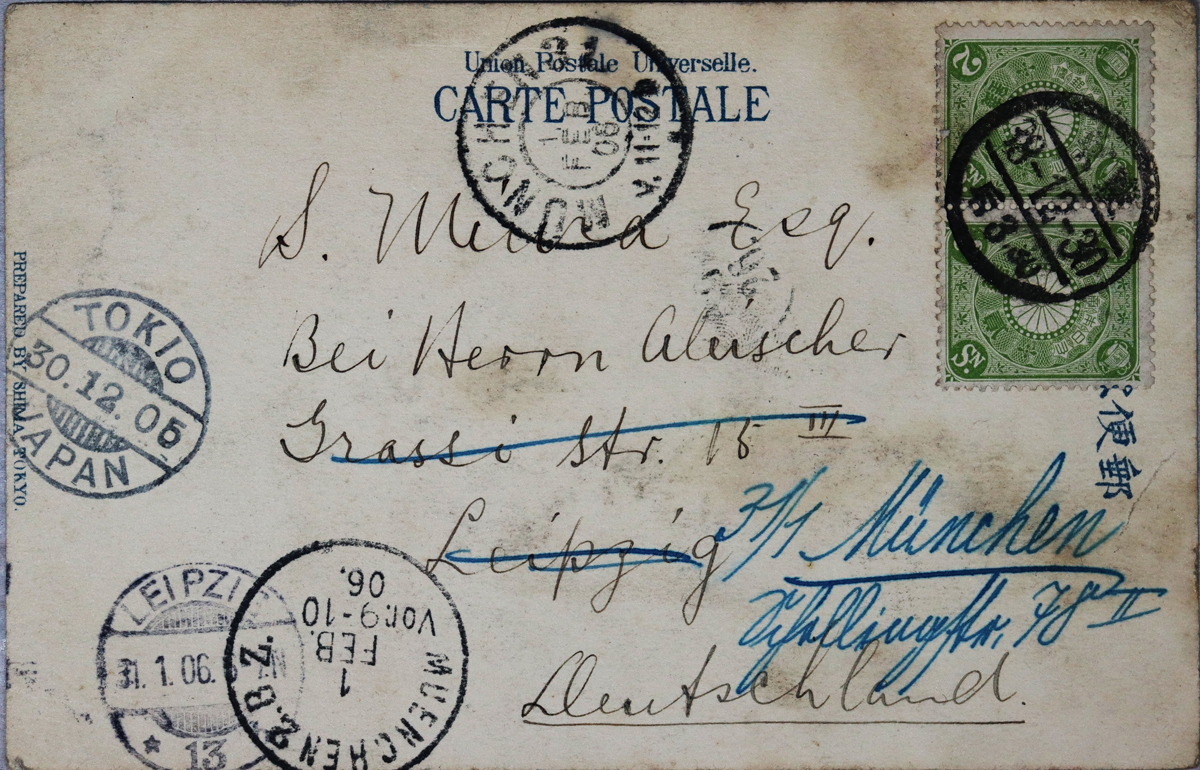 Union Postale Universelle.
CARTE POSTALE
S. Miura Esq.
Bei Herrn
Grassi Str. 15 III
Leipzig
3/1 München
Schellingstr. 78 II
Deutschland.
PREPARED BY SHIMA TOKYO.
TOKIO
30.12.05
JAPAN
LEIPZIG
31.1.06.
* 13
MUENCHEN 2.B.Z.
1
FEB.
Vor.9-10
06.
MUNCHEN 31
1.
FEB
06
V.11-12
郵便
2
Sn.
Sn.